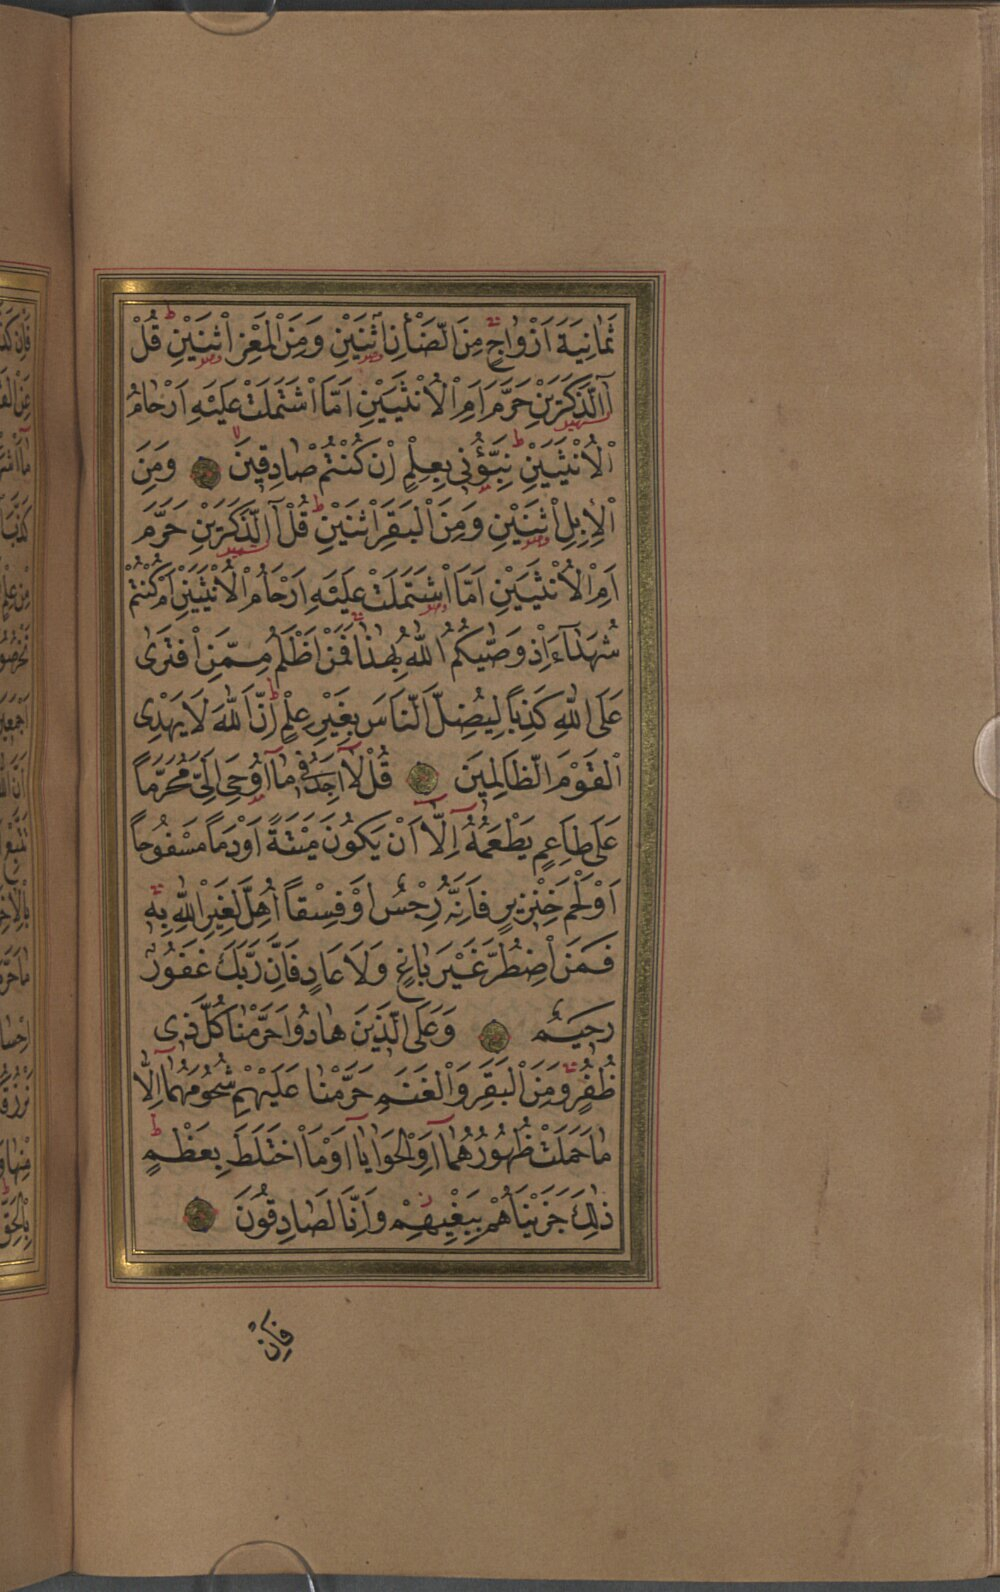 ثَمَانِيَةَ اَزْوَاجٍ مِنَ الضَّأْنِ اثْنَيْنِ وَمِنَ الْمَعْزِ اثْنَيْنِ قُلْ
آلذَّكَرَيْنِ حَرَّمَ اَمِ الْاُنْثَيَيْنِ اَمَّا اشْتَمَلَتْ عَلَيْهِ اَرْحَامُ
الْاُنْثَيَيْنِ نَبِّؤُنِي بِعِلْمٍ اِنْ كُنْتُمْ صَادِقِينَ وَمِنَ
الْاِبِلِ اثْنَيْنِ وَمِنَ الْبَقَرِ اثْنَيْنِ قُلْ آلذَّكَرَيْنِ حَرَّمَ
اَمِ الْاُنْثَيَيْنِ اَمَّا اشْتَمَلَتْ عَلَيْهِ اَرْحَامُ الْاُنْثَيَيْنِ اَمْ كُنْتُمْ
شُهَدَآءَ اِذْ وَصّٰيكُمُ اللّٰهُ بِهٰذَا فَمَنْ اَظْلَمُ مِمَّنِ افْتَرٰى
عَلَى اللّٰهِ كَذِبًا لِيُضِلَّ النَّاسَ بِغَيْرِ عِلْمٍ اِنَّ اللّٰهَ لَا يَهْدِى
الْقَوْمَ الظَّالِمِينَ قُلْ لَآ اَجِدُ فِى مَآ اُوحِىَ اِلَىَّ مُحَرَّمًا
عَلٰى طَاعِمٍ يَطْعَمُهُٓ اِلَّآ اَنْ يَكُونَ مَيْتَةً اَوْ دَمًا مَسْفُوحًا
اَوْ لَحْمَ خِنْزِيرٍ فَاِنَّهُ رِجْسٌ اَوْ فِسْقًا اُهِلَّ لِغَيْرِ اللّٰهِ بِهِ
فَمَنِ اضْطُرَّ غَيْرَ بَاغٍ وَلَا عَادٍ فَاِنَّ رَبَّكَ غَفُورٌ
رَحِيمٌ وَعَلَى الَّذِينَ هَادُوا حَرَّمْنَا كُلَّ ذِى
ظُفُرٍ وَمِنَ الْبَقَرِ وَالْغَنَمِ حَرَّمْنَا عَلَيْهِمْ شُحُومَهُمَآ اِلَّا
مَا حَمَلَتْ ظُهُورُهُمَآ اَوِ الْحَوَايَآ اَوْ مَا اخْتَلَطَ بِعَظْمٍ
ذٰلِكَ جَزَيْنَاهُمْ بِبَغْيِهِمْ وَاِنَّا لَصَادِقُونَ
فَاِنْ